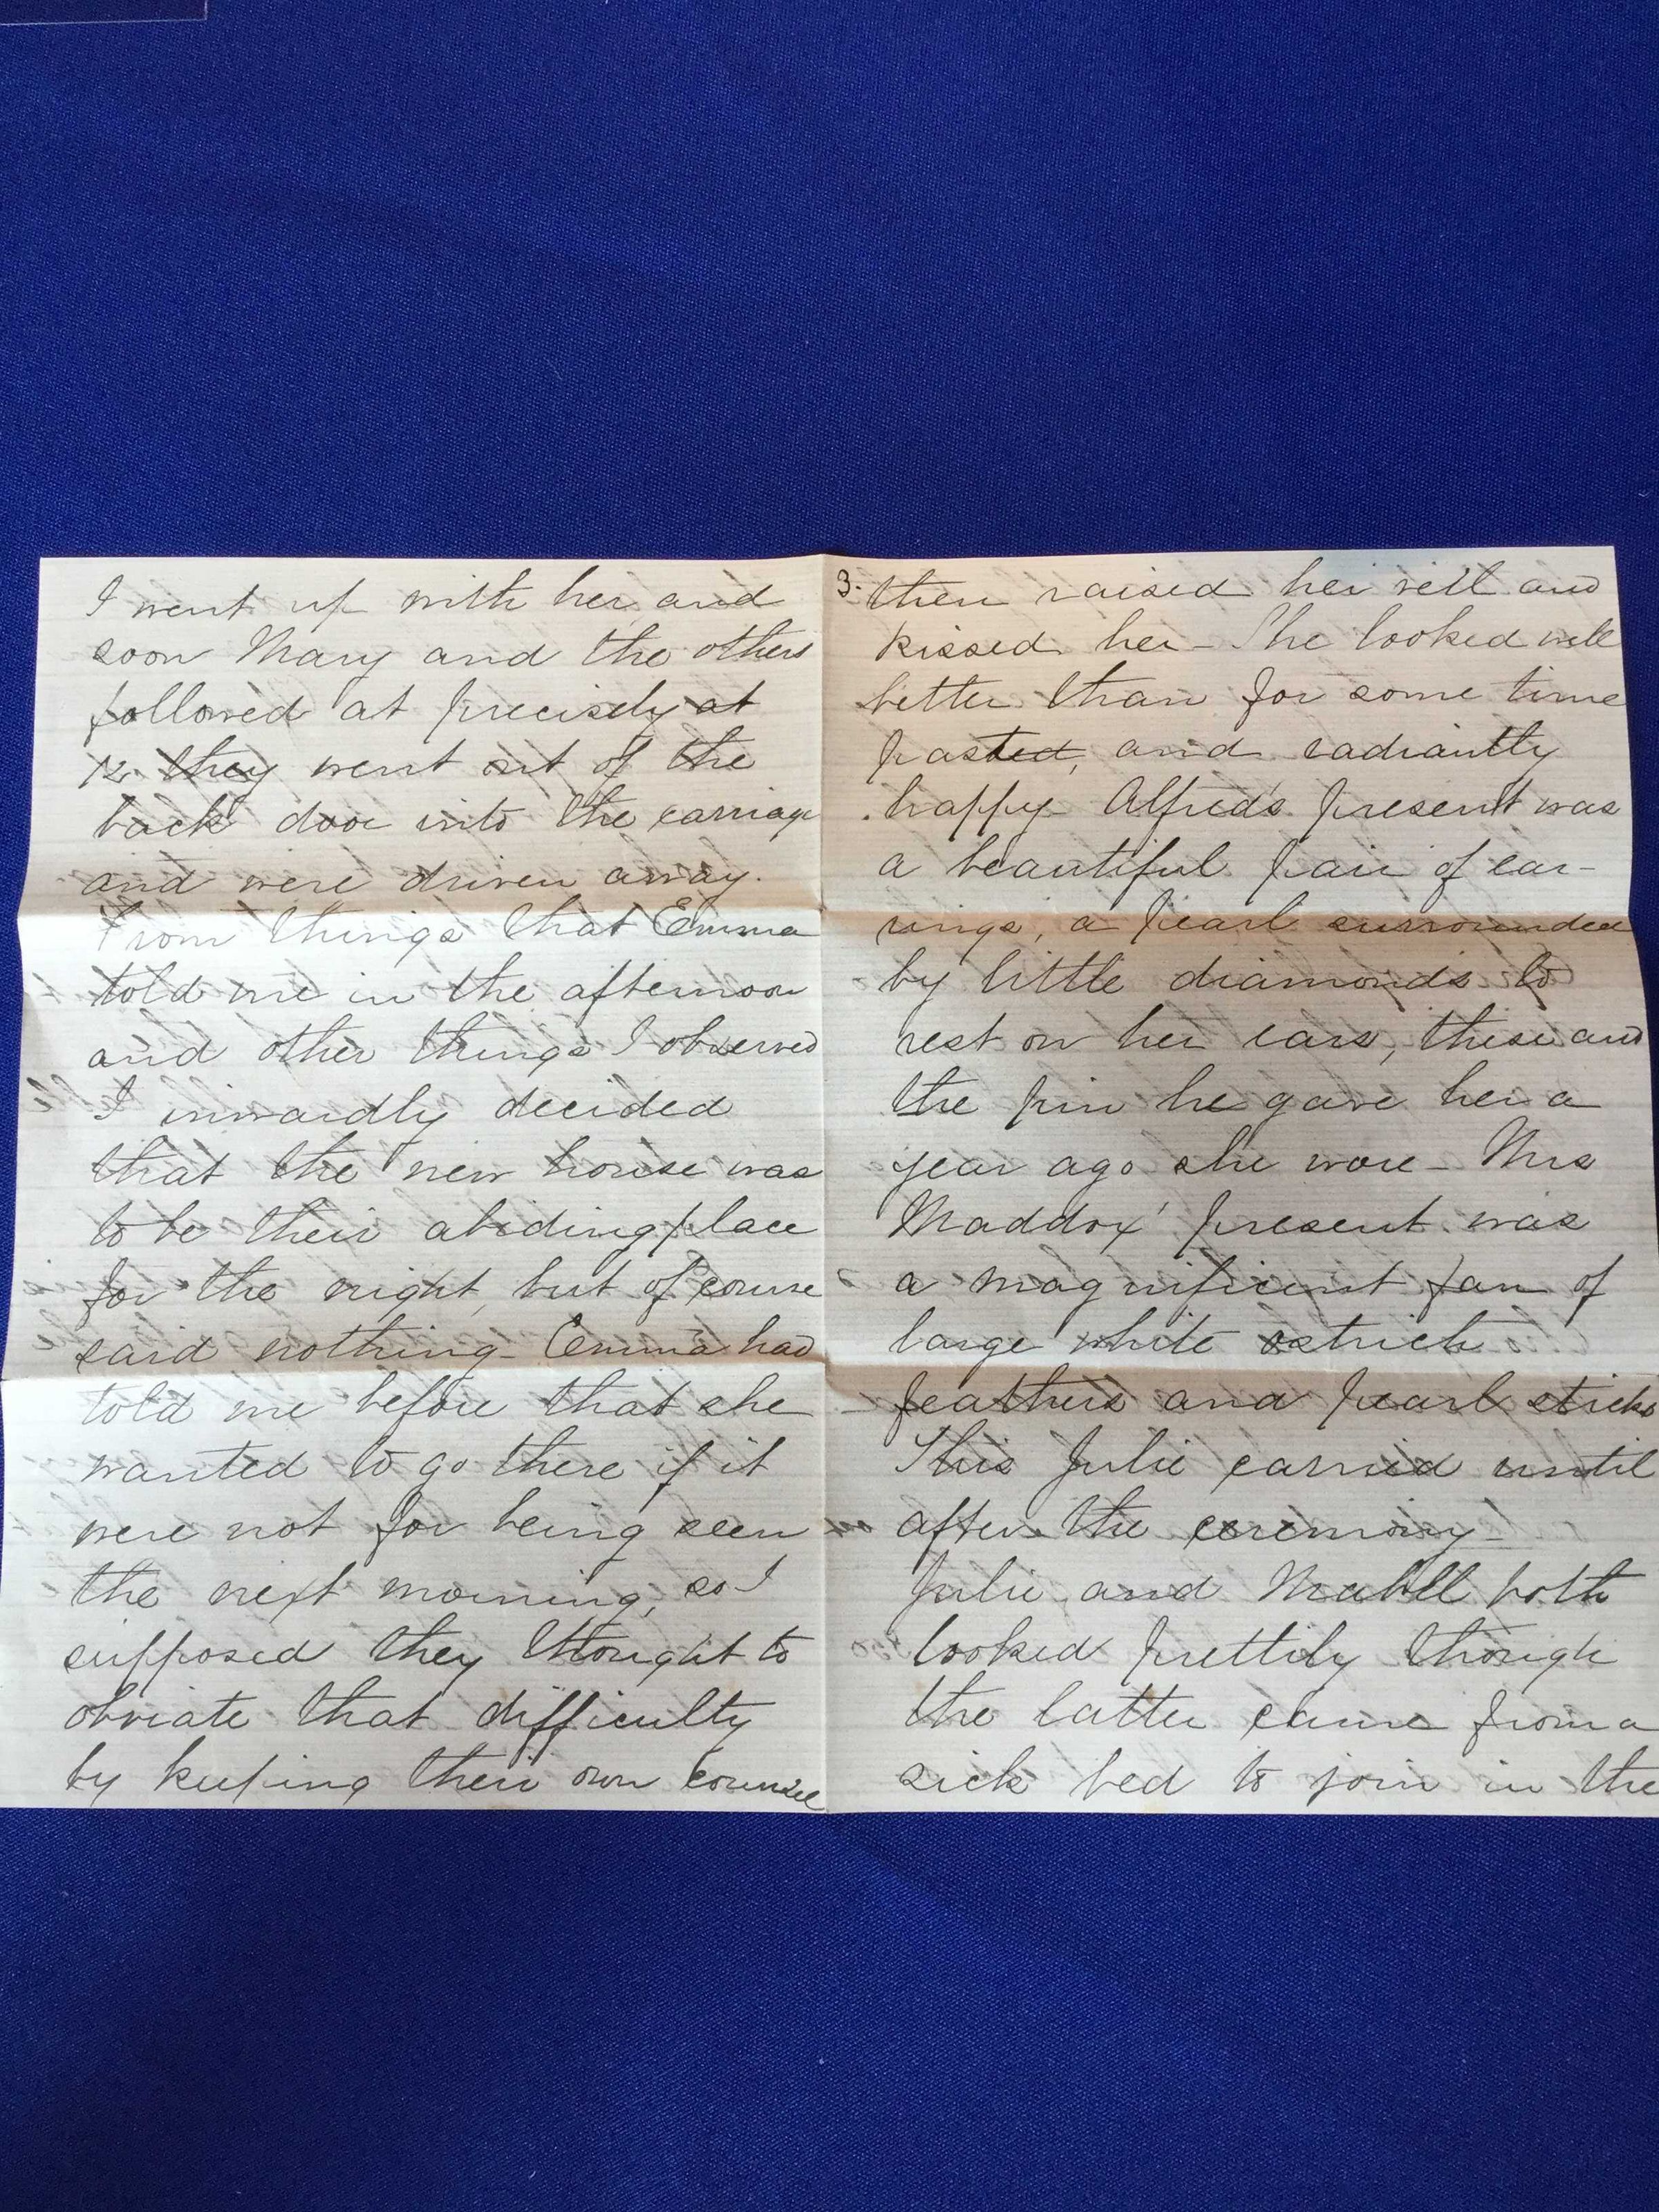 I went up with her and
soon Mary and the others
followed at precisely at
12. they went out of the
back door into the carriage
and were driven away.
From things that Emma
told me in the afternoon
and other things I observed
I inwardly decided
that the new house was
to be their abiding place
for the night, but of course
said nothing - Emma had
told me before that she
wanted to go there if it
were not for being seen
the next morning, so I
supposed they thought to
obviate that difficulty
by keeping their own counsel
3. then raised her veil and
kissed her - She looked well
better than for some time
pasted, and radiantly
happy - Alfred's present was
a beautiful pair of ear-
rings, a pearl surrounded
by little diamonds to
rest on her ears, these and
the pin he gave her a
year ago she wore - Mrs
Maddox' present was
a magnificent fan of
large white ostrich
feathers and pearl sticks
This Julie carried until
after the ceremony -
Julie and Mabel both
looked prettily though
the latter came from a
sick bed to join in the